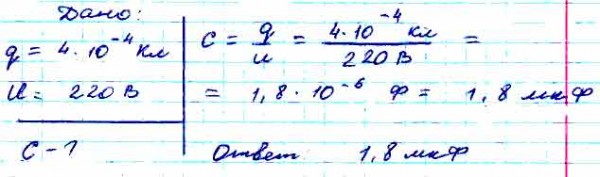 Дано:
q = 4·10⁻⁴ Кл
U = 220 В
C - ?
C = q/U = 4·10⁻⁴ Кл / 220 В =
= 1,8·10⁻⁶ Ф = 1,8 мкФ
Ответ 1,8 мкФ